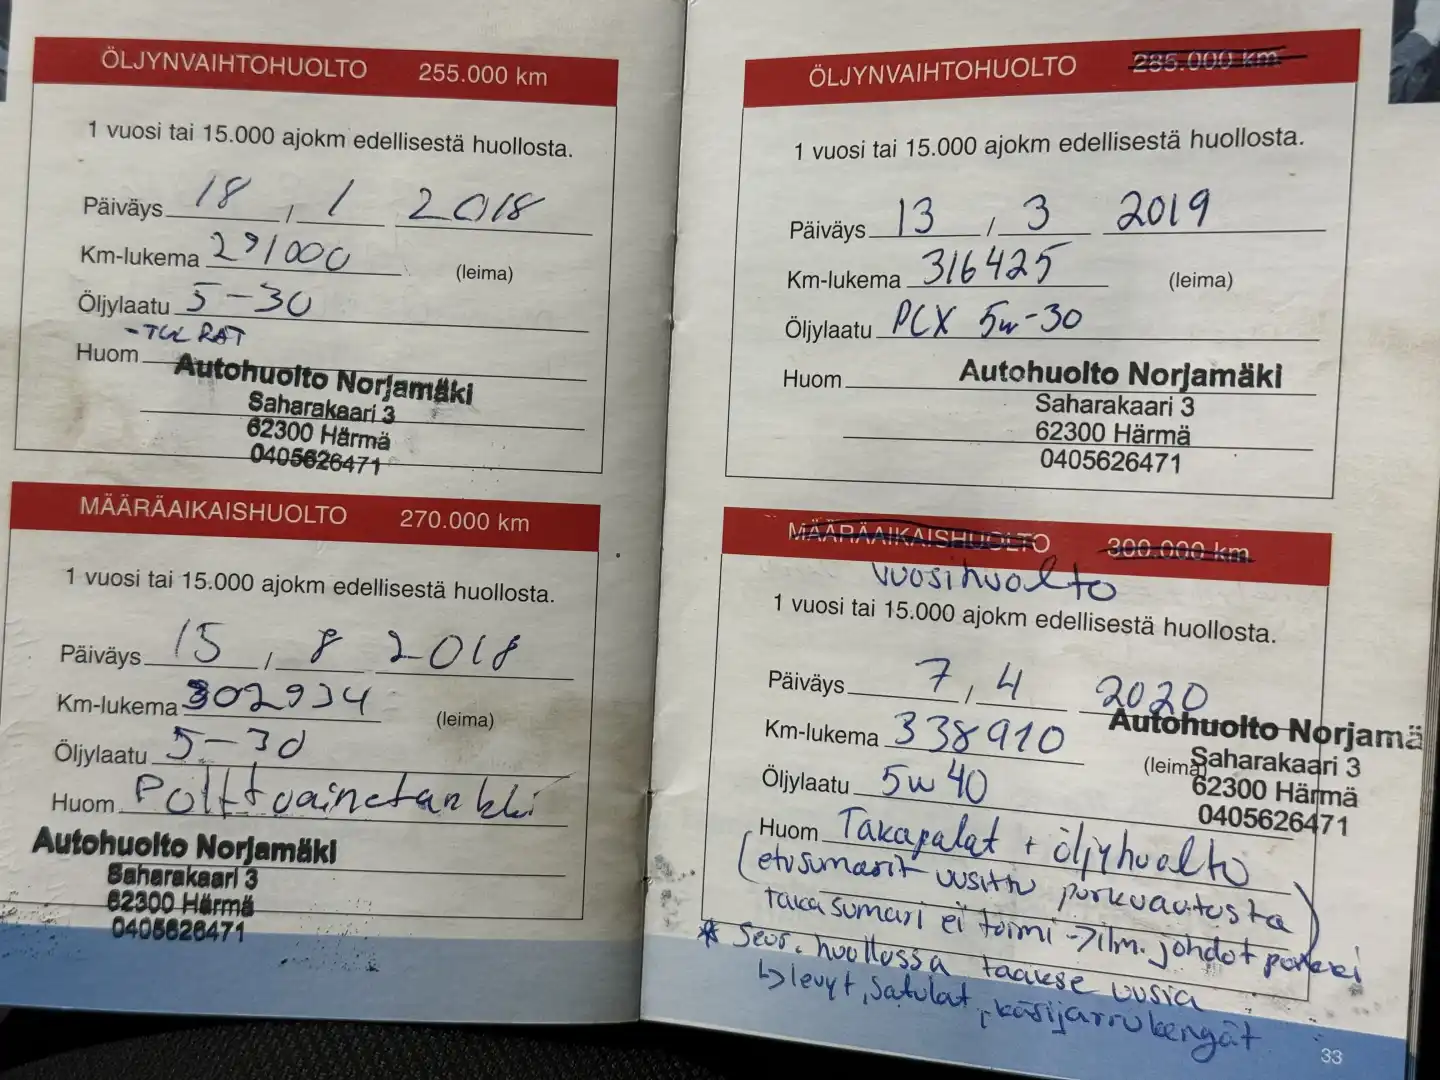 ÖLJYNVAIHTOHUOLTO 255.000 km
1 vuosi tai 15.000 ajokm edellisestä huollosta.
Päiväys 18 , 1 2018
Km-lukema 291000 (leima)
Öljylaatu 5-30
Huom
Autohuolto Norjamäki
Saharakaari 3
62300 Härmä
0405626471
MÄÄRÄAIKAISHUOLTO 270.000 km
1 vuosi tai 15.000 ajokm edellisestä huollosta.
Päiväys 15 , 8 2018
Km-lukema 302934 (leima)
Öljylaatu 5-30
Huom Polttoainetankki
Autohuolto Norjamäki
Saharakaari 3
62300 Härmä
0405626471
ÖLJYNVAIHTOHUOLTO 285.000 km
1 vuosi tai 15.000 ajokm edellisestä huollosta.
Päiväys 13 , 3 2019
Km-lukema 316425 (leima)
Öljylaatu PCX 5w-30
Huom
Autohuolto Norjamäki
Saharakaari 3
62300 Härmä
0405626471
MÄÄRÄAIKAISHUOLTO 300.000 km
vuosihuolto
1 vuosi tai 15.000 ajokm edellisestä huollosta.
Päiväys 7 , 4 2020
Km-lukema 338910 (leima)
Autohuolto Norjamä
Saharakaari 3
62300 Härmä
0405626471
Öljylaatu 5w40
Huom Takapalat + öljyhuolto
(etusumarit uusittu purkuautosta
takasumari ei toimi -> ilm. johdot poikki)
* Seur. huollossa taakse uusia
↳ levyt, satulat, käsijarrukengät
33